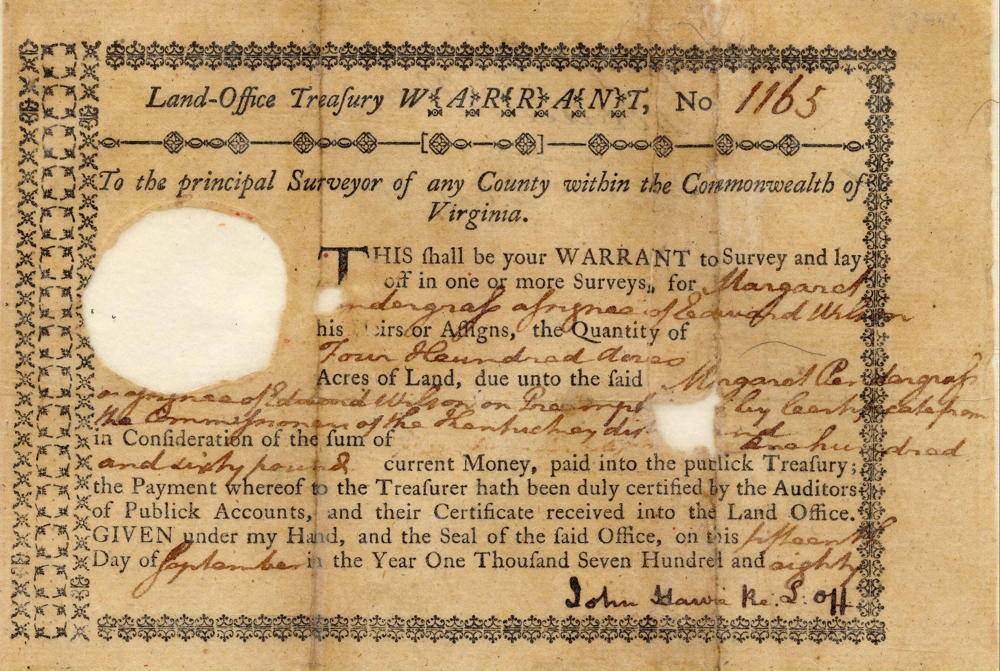 Land-Office Treaſury WARRANT, No 1165
To the principal Surveyor of any County within the Commonwealth of
Virginia.
THIS ſhall be your WARRANT to Survey and lay
off in one or more Surveys, for Margaret
ndergraſs aſsignee of Edward Wilson
his irs or Aſſigns, the Quantity of
Four Heundred Acres
Acres of Land, due unto the ſaid Margaret Pendergraſs
aſsignee of Edward Wilson on Preempt by Certificate from
the Commiſsioners of the Kentuckey dist and
in Conſideration of the ſum of One hundred
and sixty pound current Money, paid into the publick Treaſury;
the Payment whereof to the Treaſurer hath been duly certified by the Auditors
of Publick Accounts, and their Certificate received into the Land Office.
GIVEN under my Hand, and the Seal of the ſaid Office, on this fifteenth
Day of September in the Year One Thouſand Seven Hundred and eighty
John Hawie Re. L. off